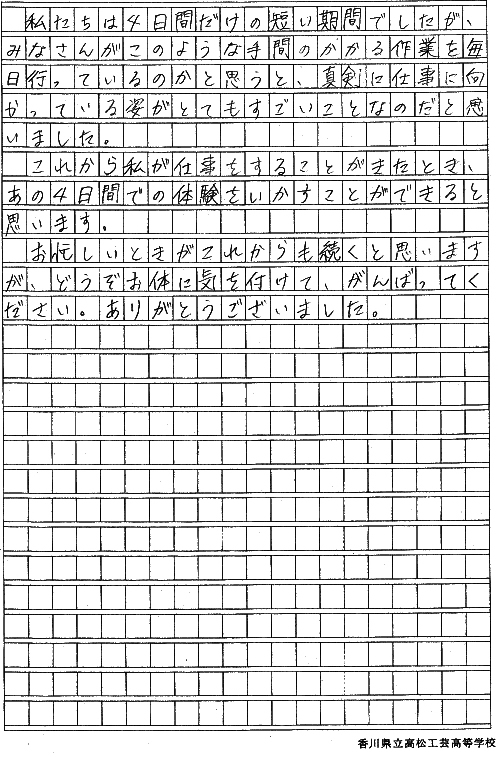 私たちは4日間だけの短い期間でしたが、
みなさんがこのような手間のかかる作業を毎
日行っているのかと思うと、真剣に仕事に向
かっている姿がとてもすごいことなのだと思
いました。
これから私が仕事をすることがきたとき、
あの4日間での体験をいかすことができると
思います。
お忙しいときがこれからも続くと思います
が、どうぞお体に気を付けて、がんばってく
ださい。ありがとうございました。
香川県立高松工芸高等学校